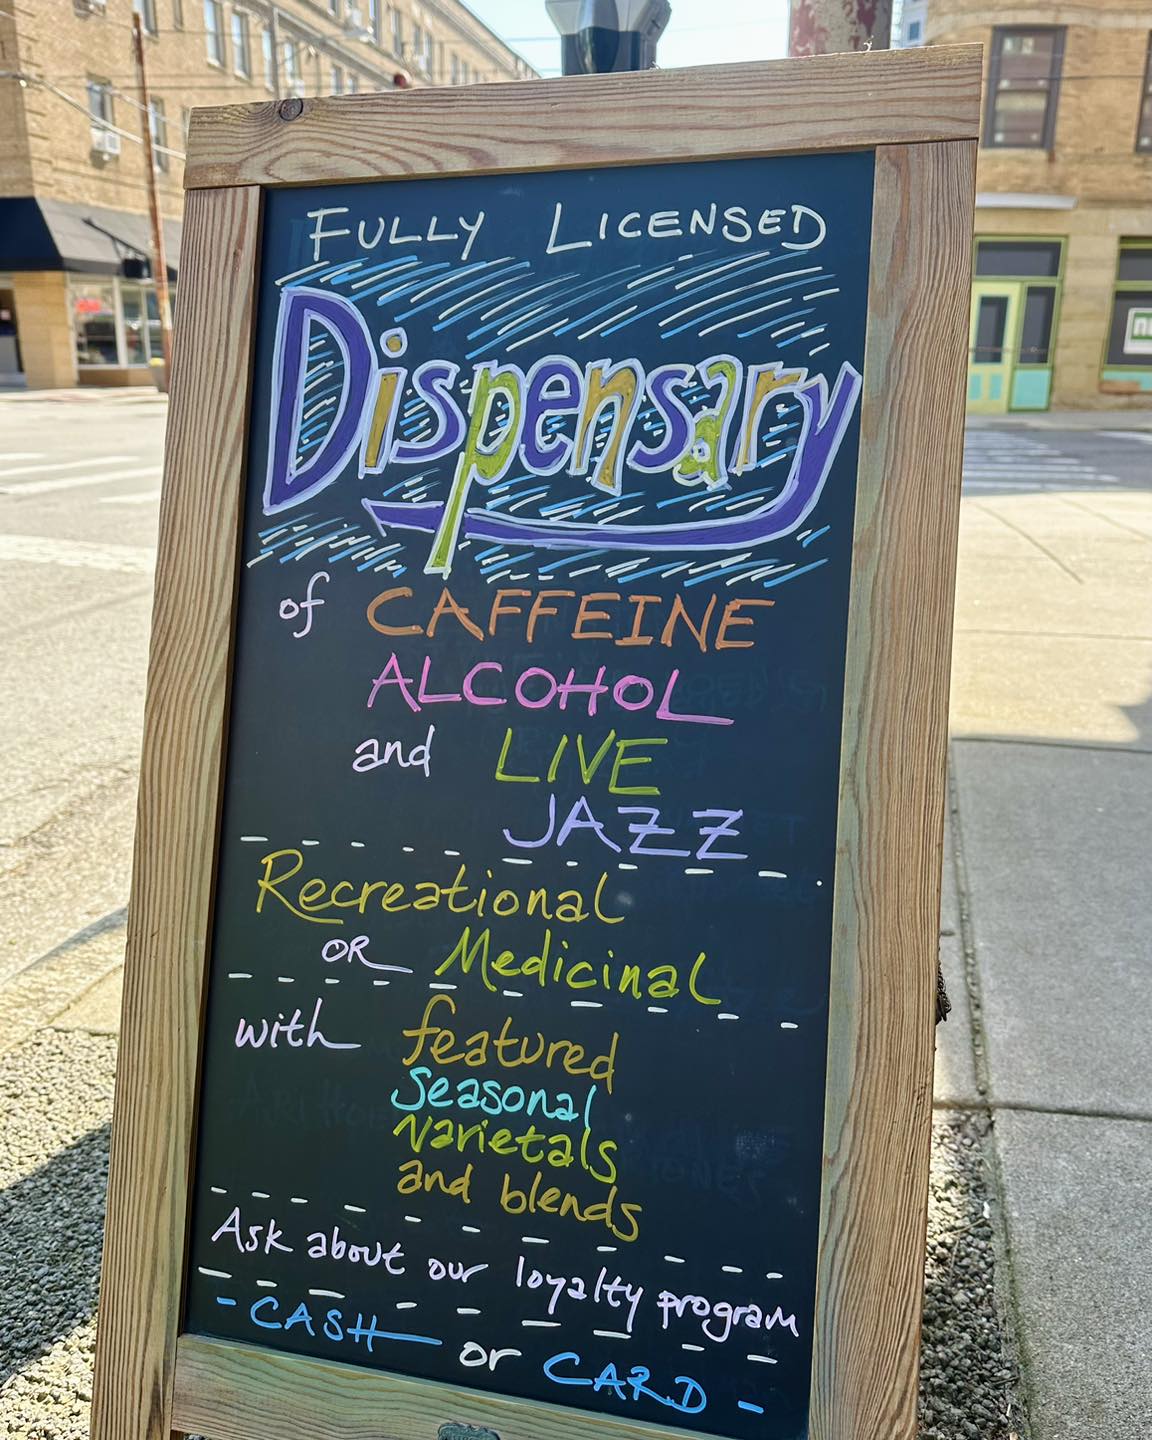 FULLY LICENSED
Dispensary
of CAFFEINE
ALCOHOL
and LIVE
JAZZ
Recreational
OR Medicinal
with featured
seasonal
varietals
and blends
Ask about our loyalty program
- CASH or CARD -